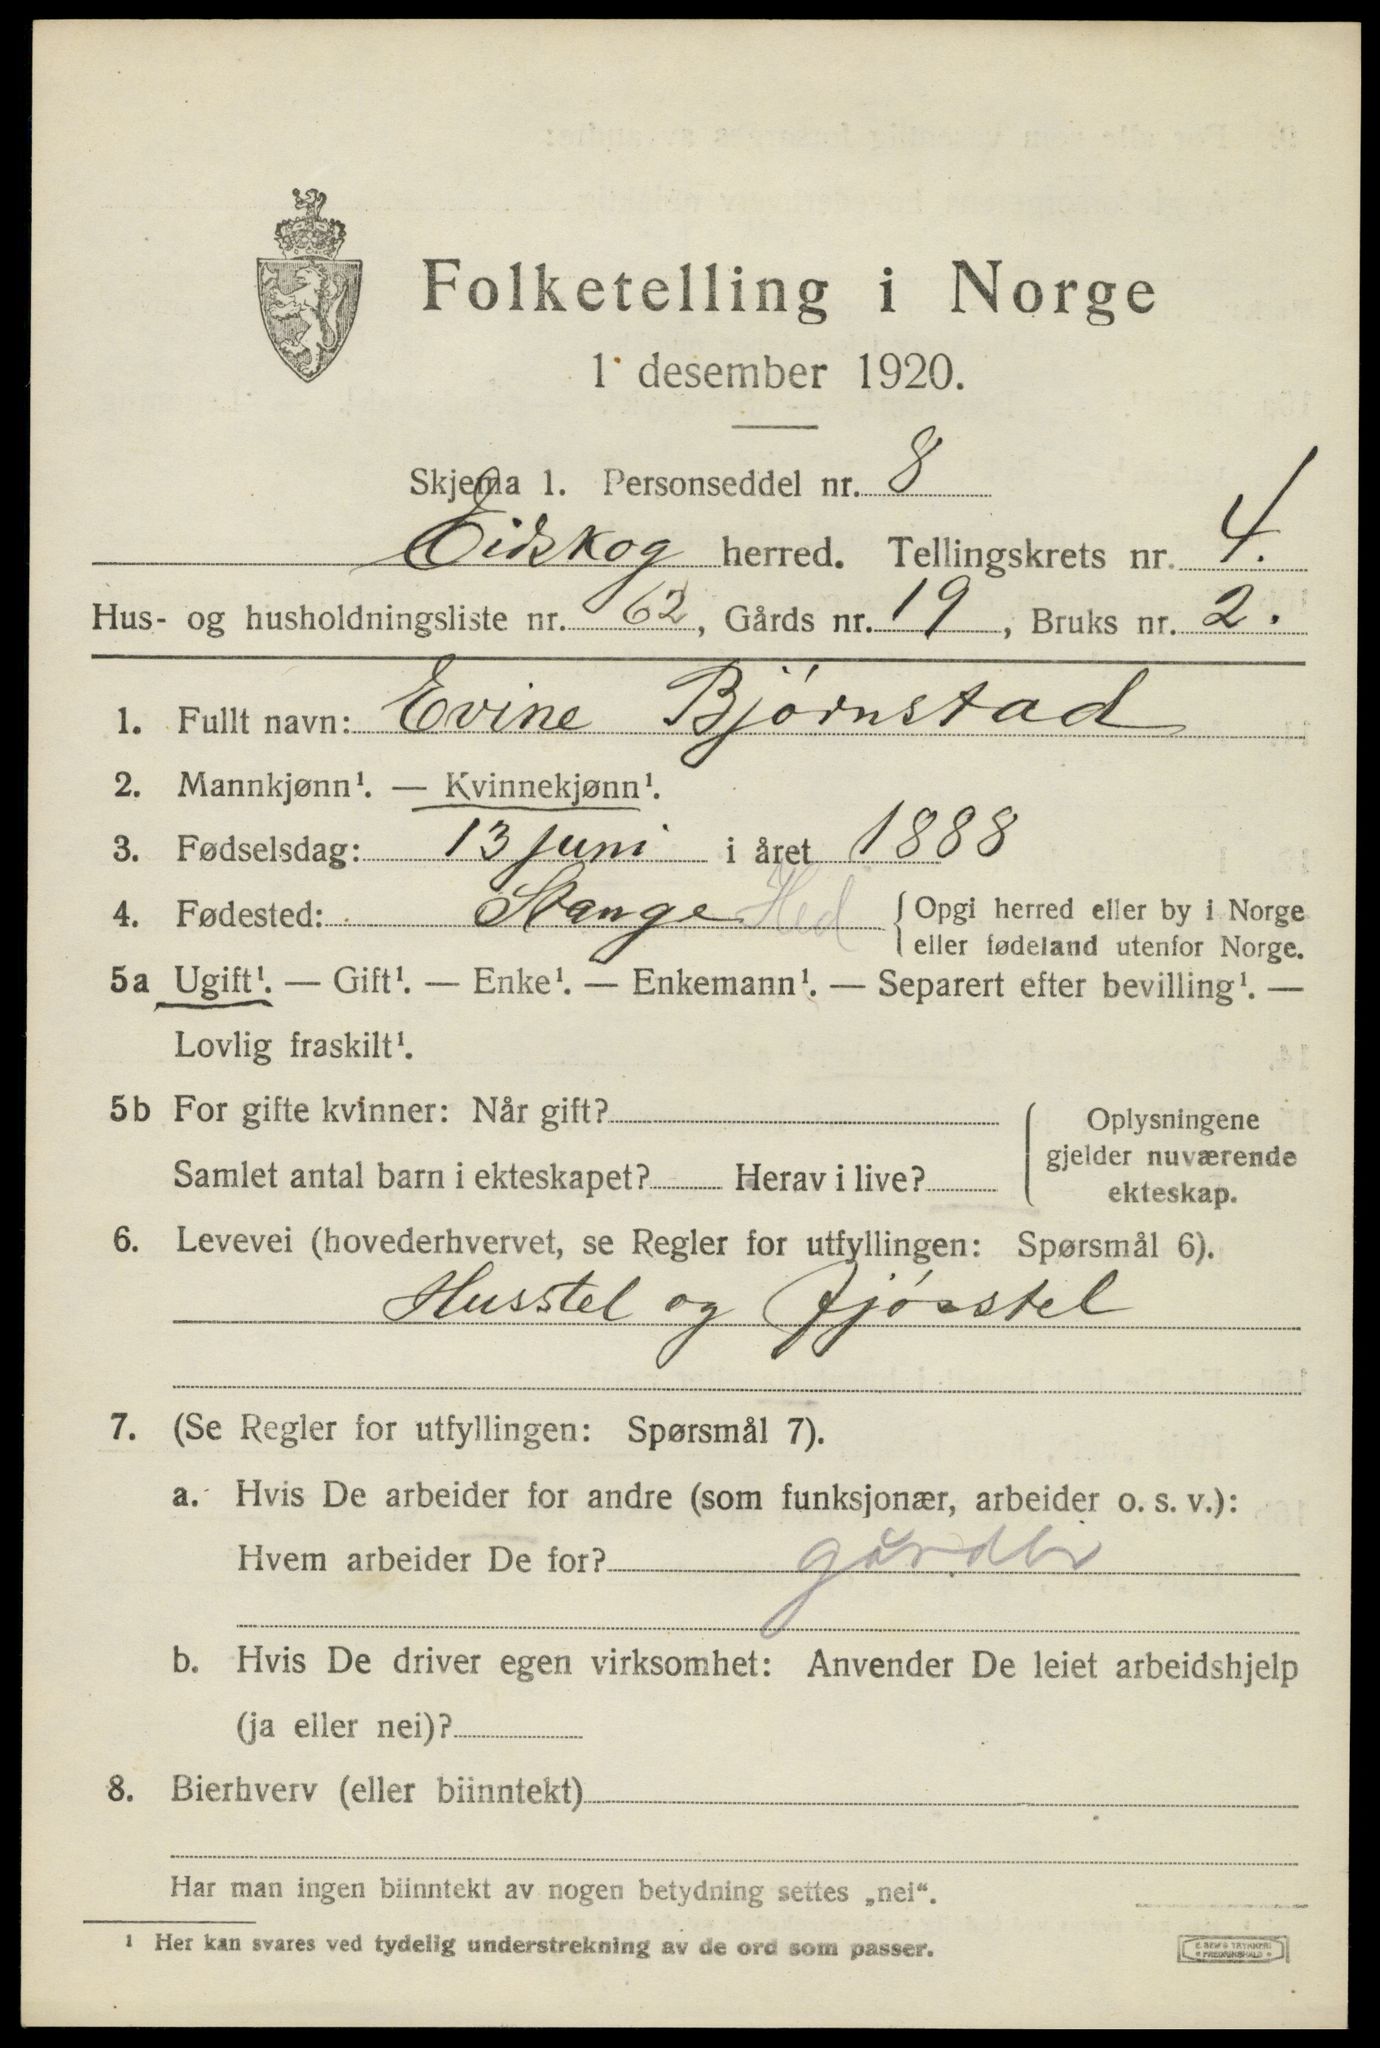 Folketelling i Norge
1 desember 1920.
Skjema 1. Personseddel nr. 8
Eidskog herred. Tellingskrets nr. 4.
Hus- og husholdningsliste nr. 62, Gårds nr. 19, Bruks nr. 2.
1. Fullt navn: Evine Bjørnstad
2. Mannkjønn¹. — Kvinnekjønn¹.
3. Fødselsdag: 13 juni i året 1888
4. Fødested: Stange Hed { Opgi herred eller by i Norge
eller fødeland utenfor Norge.
5a Ugift¹. — Gift¹. — Enke¹. — Enkemann¹. — Separert efter bevilling¹. —
Lovlig fraskilt¹.
5b For gifte kvinner: Når gift?
Samlet antal barn i ekteskapet? Herav i live?
Oplysningene
gjelder nuværende
ekteskap.
6. Levevei (hovederhvervet, se Regler for utfyllingen: Spørsmål 6).
Husstel og fjøsstel
7. (Se Regler for utfyllingen: Spørsmål 7).
a. Hvis De arbeider for andre (som funksjonær, arbeider o. s. v.):
Hvem arbeider De for? gårdbr
b. Hvis De driver egen virksomhet: Anvender De leiet arbeidshjelp
(ja eller nei)?
8. Bierhverv (eller biinntekt)
Har man ingen biinntekt av nogen betydning settes „nei“.
¹ Her kan svares ved tydelig understrekning av de ord som passer.